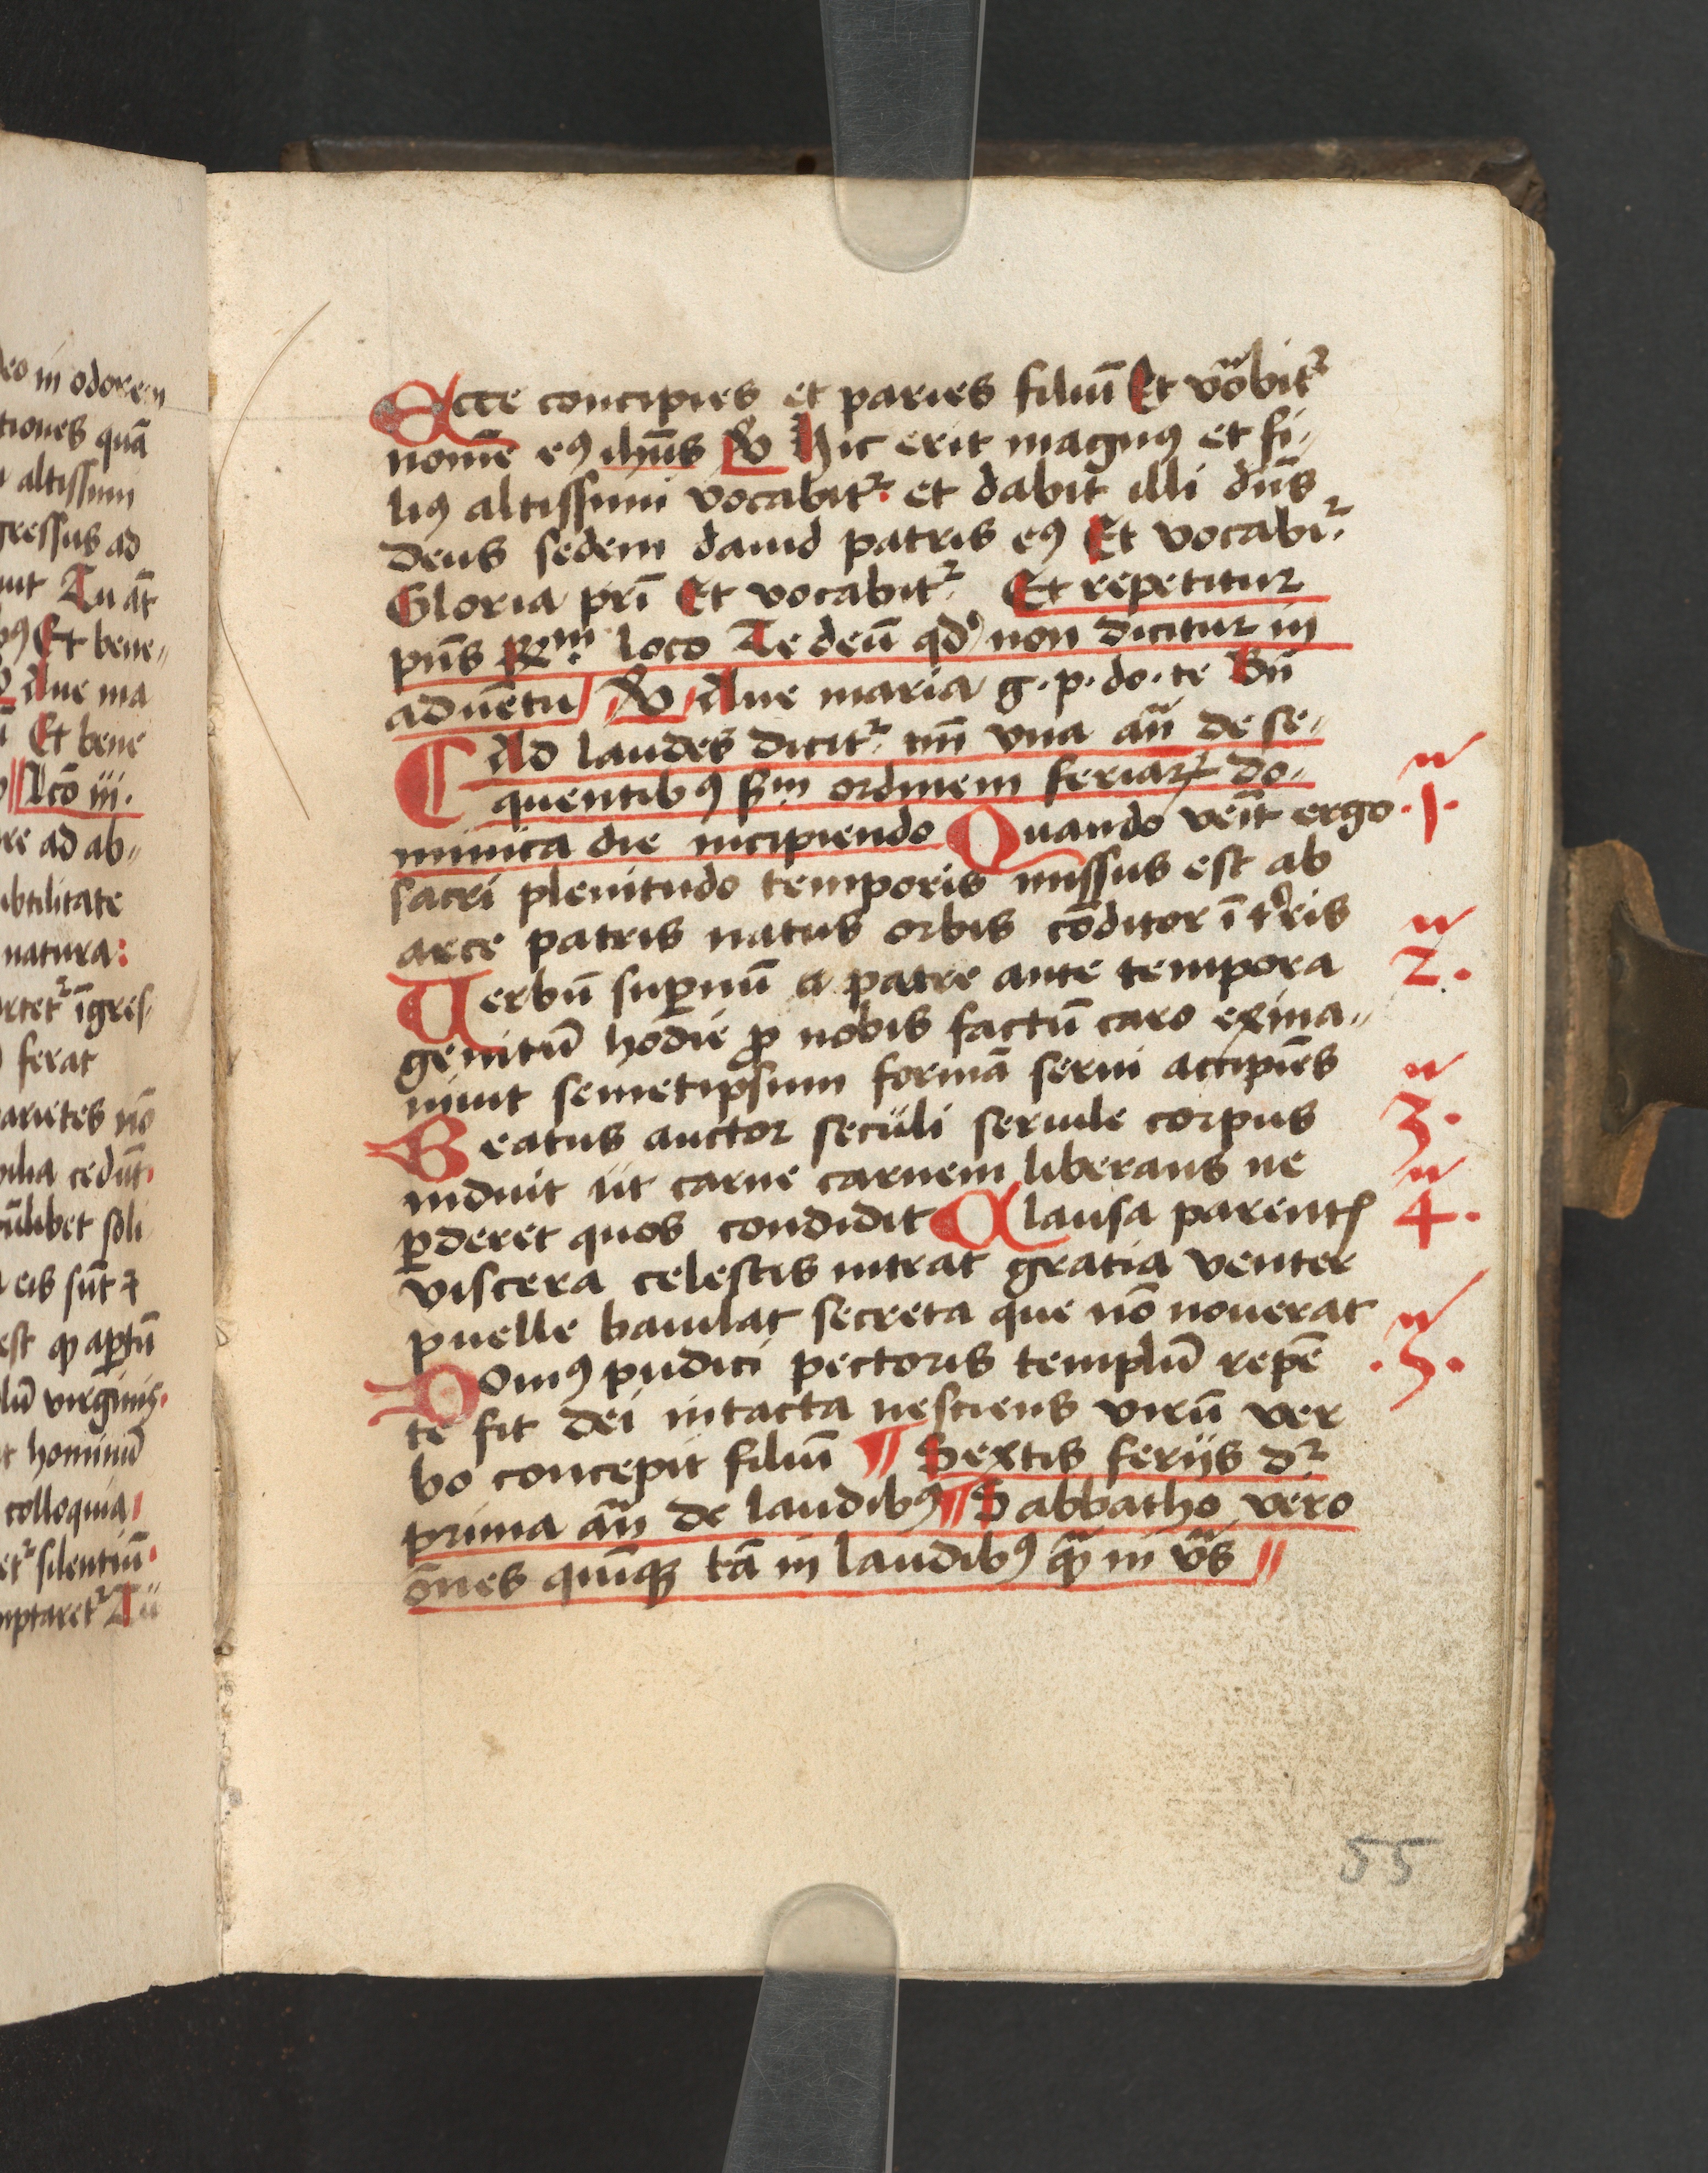 eo in odorem
tiones quā
altissimi
gressus ad
Tu āt
Et bene„
Aue ma
Et bene
Lcō iij.
re ad ab„
ubtilitate
natura:
īgres„
ferat
arietes nō
cedūt.
soli
eis sūt
est ꝙ aꝑtū
virginis.
hominū
colloquia
silentiū.
Ecce concipies et paries filiuꝫ Et vōabitᷣ
nomē eꝰ ihūs ℣ Hic erit magnꝰ et fi„
liꝰ altissimi vocabitᷣ. et dabit illi dūs
deus sedem dauid patris eꝰ Et vocabiᷣ.
Gloria pr̄i Et vocabitᷣ. Et repetitur
pn̄s ℞m̄ loco Te deū qd' non dicitur in
aduētu ℣ Aue maria g. p. do. te Bn̄
Ad laudes dicitᷣ. tm̄ vna an̄ de se„
quentibꝰ Scdm ordinem feriaꝝ do„
minica die incipiendo Quando veīt ergo .1.
sacri plenitudo temporis missus est ab
arce patris natus orbis cōditor ī tr̄ris
Uerbū suꝑnū a patre ante tempora 2.
genitū hodie ꝓ nobis factū caro exina„
niuit semetipsum formā serui accipiēs
Beatus auctor seculi seruile corpus 3.
induit ut carne carnem liberans ne
ꝑderet quos condidit Clausa parentꝭ 4.
viscera celestis intrat gratia venter
puelle baiulat secreta que nō nouerat
Domꝰ pudici pectoris templū repē .5.
te fit dei intacta nesciens virū ver
bo concepit filiuꝫ ¶ Sextis ferijs dᷣ
prima an̄ de laudibꝰ ¶ Sabbatho vero
ōnes quīqꝫ tā in laudibꝰ ꝙ̄ in v̄s
55